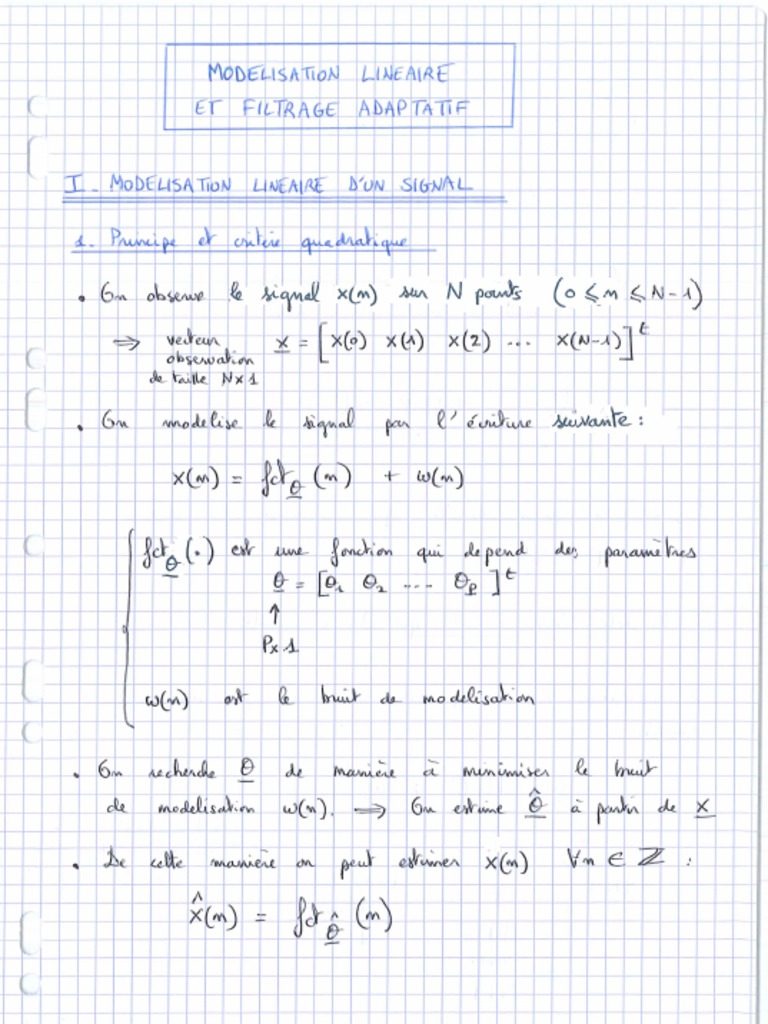 MODELISATION LINEAIRE
ET FILTRAGE ADAPTATIF
I. MODELISATION LINEAIRE D'UN SIGNAL
1. Principe et critère quadratique
• On observe le signal x(n) sur N points (0 ≤ n ≤ N-1)
⇒ vecteur observation de taille N×1 x̲ = [x(0) x(1) x(2) ... x(N-1)]ᵗ
• On modelise le signal par l'écriture suivante :
x(n) = fct_θ̲ (n) + w(n)
fct_θ̲ (.) est une fonction qui depend des paramètres
θ̲ = [θ₁ θ₂ .... θ_P ]ᵗ
↑
P×1
w(n) est le bruit de modelisation
• On recherche θ̲ de manière à minimiser le bruit
de modelisation w(n). ⇒ On estime θ̲̂ à partir de x̲
• De cette manière on peut estimer x(n) ∀n ∈ ℤ :
x̂(n) = fct_θ̲̂ (n)